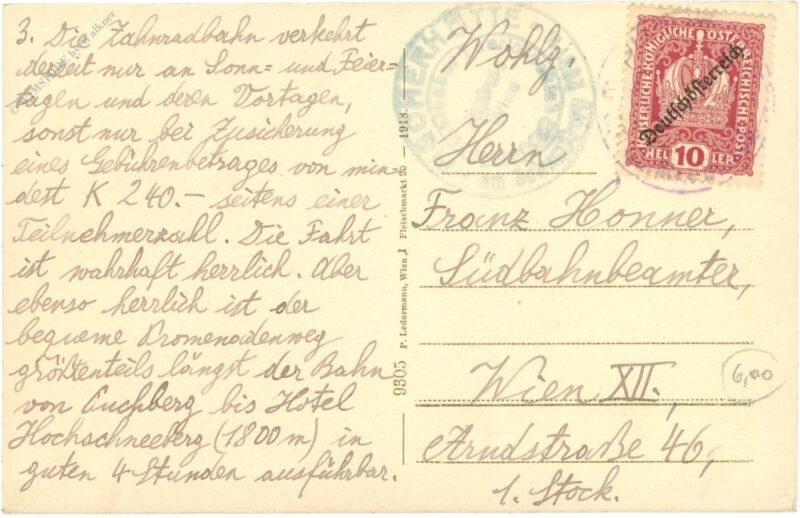 3. Die Zahnradbahn verkehrt
derzeit nur an Sonn= und Feier=
tagen und deren Vortagen,
sonst nur bei Zusicherung
eines Gebührenbetrages von min=
dest K 240.— seitens einer
Teilnehmerzahl. Die Fahrt
ist wahrhaft herrlich. Aber
ebenso herrlich ist der
bequeme Promenadenweg
größtenteils längst der Bahn
von Puchberg bis Hotel
Hochschneeberg (1800 m) in
guten 4 Stunden ausführbar.
9305 P. Ledermann, Wien I Fleischmarkt 20 — 1918.
KAISERLICHE KÖNIGLICHE ÖSTERREICHISCHE POST
Deutschösterreich
HEL 10 LER
Wohlg.
Herrn
Franz Honner,
Südbahnbeamter,
Wien XII.,
Arndstraße 46,
1. Stock.
6,00